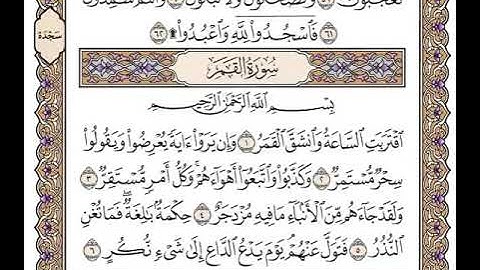 تعجبون ۝٥٩ وتضحكون ولا تبكون ۝٦٠ وأنتم سٰمدون
۝٦١ فَٱسْجُدُوا۟ لِلَّهِ وَٱعْبُدُوا۟ ۩ ۝٦٢
سَجْدَة
سُورَةُ القَمَرِ
بِسْمِ ٱللَّهِ ٱلرَّحْمَٰنِ ٱلرَّحِيمِ
ٱقْتَرَبَتِ ٱلسَّاعَةُ وَٱنشَقَّ ٱلْقَمَرُ ۝١ وَإِن يَرَوْا۟ ءَايَةً يُعْرِضُوا۟ وَيَقُولُوا۟
سِحْرٌ مُّسْتَمِرٌّ ۝٢ وَكَذَّبُوا۟ وَٱتَّبَعُوٓا۟ أَهْوَآءَهُمْ ۚ وَكُلُّ أَمْرٍ مُّسْتَقِرٌّ ۝٣
وَلَقَدْ جَآءَهُم مِّنَ ٱلْأَنۢبَآءِ مَا فِيهِ مُزْدَجَرٌ ۝٤ حِكْمَةٌۢ بَٰلِغَةٌ ۖ فَمَا تُغْنِ
ٱلنُّذُرُ ۝٥ فَتَوَلَّ عَنْهُمْ ۘ يَوْمَ يَدْعُ ٱلدَّاعِ إِلَىٰ شَىْءٍ نُّكُرٍ ۝٦